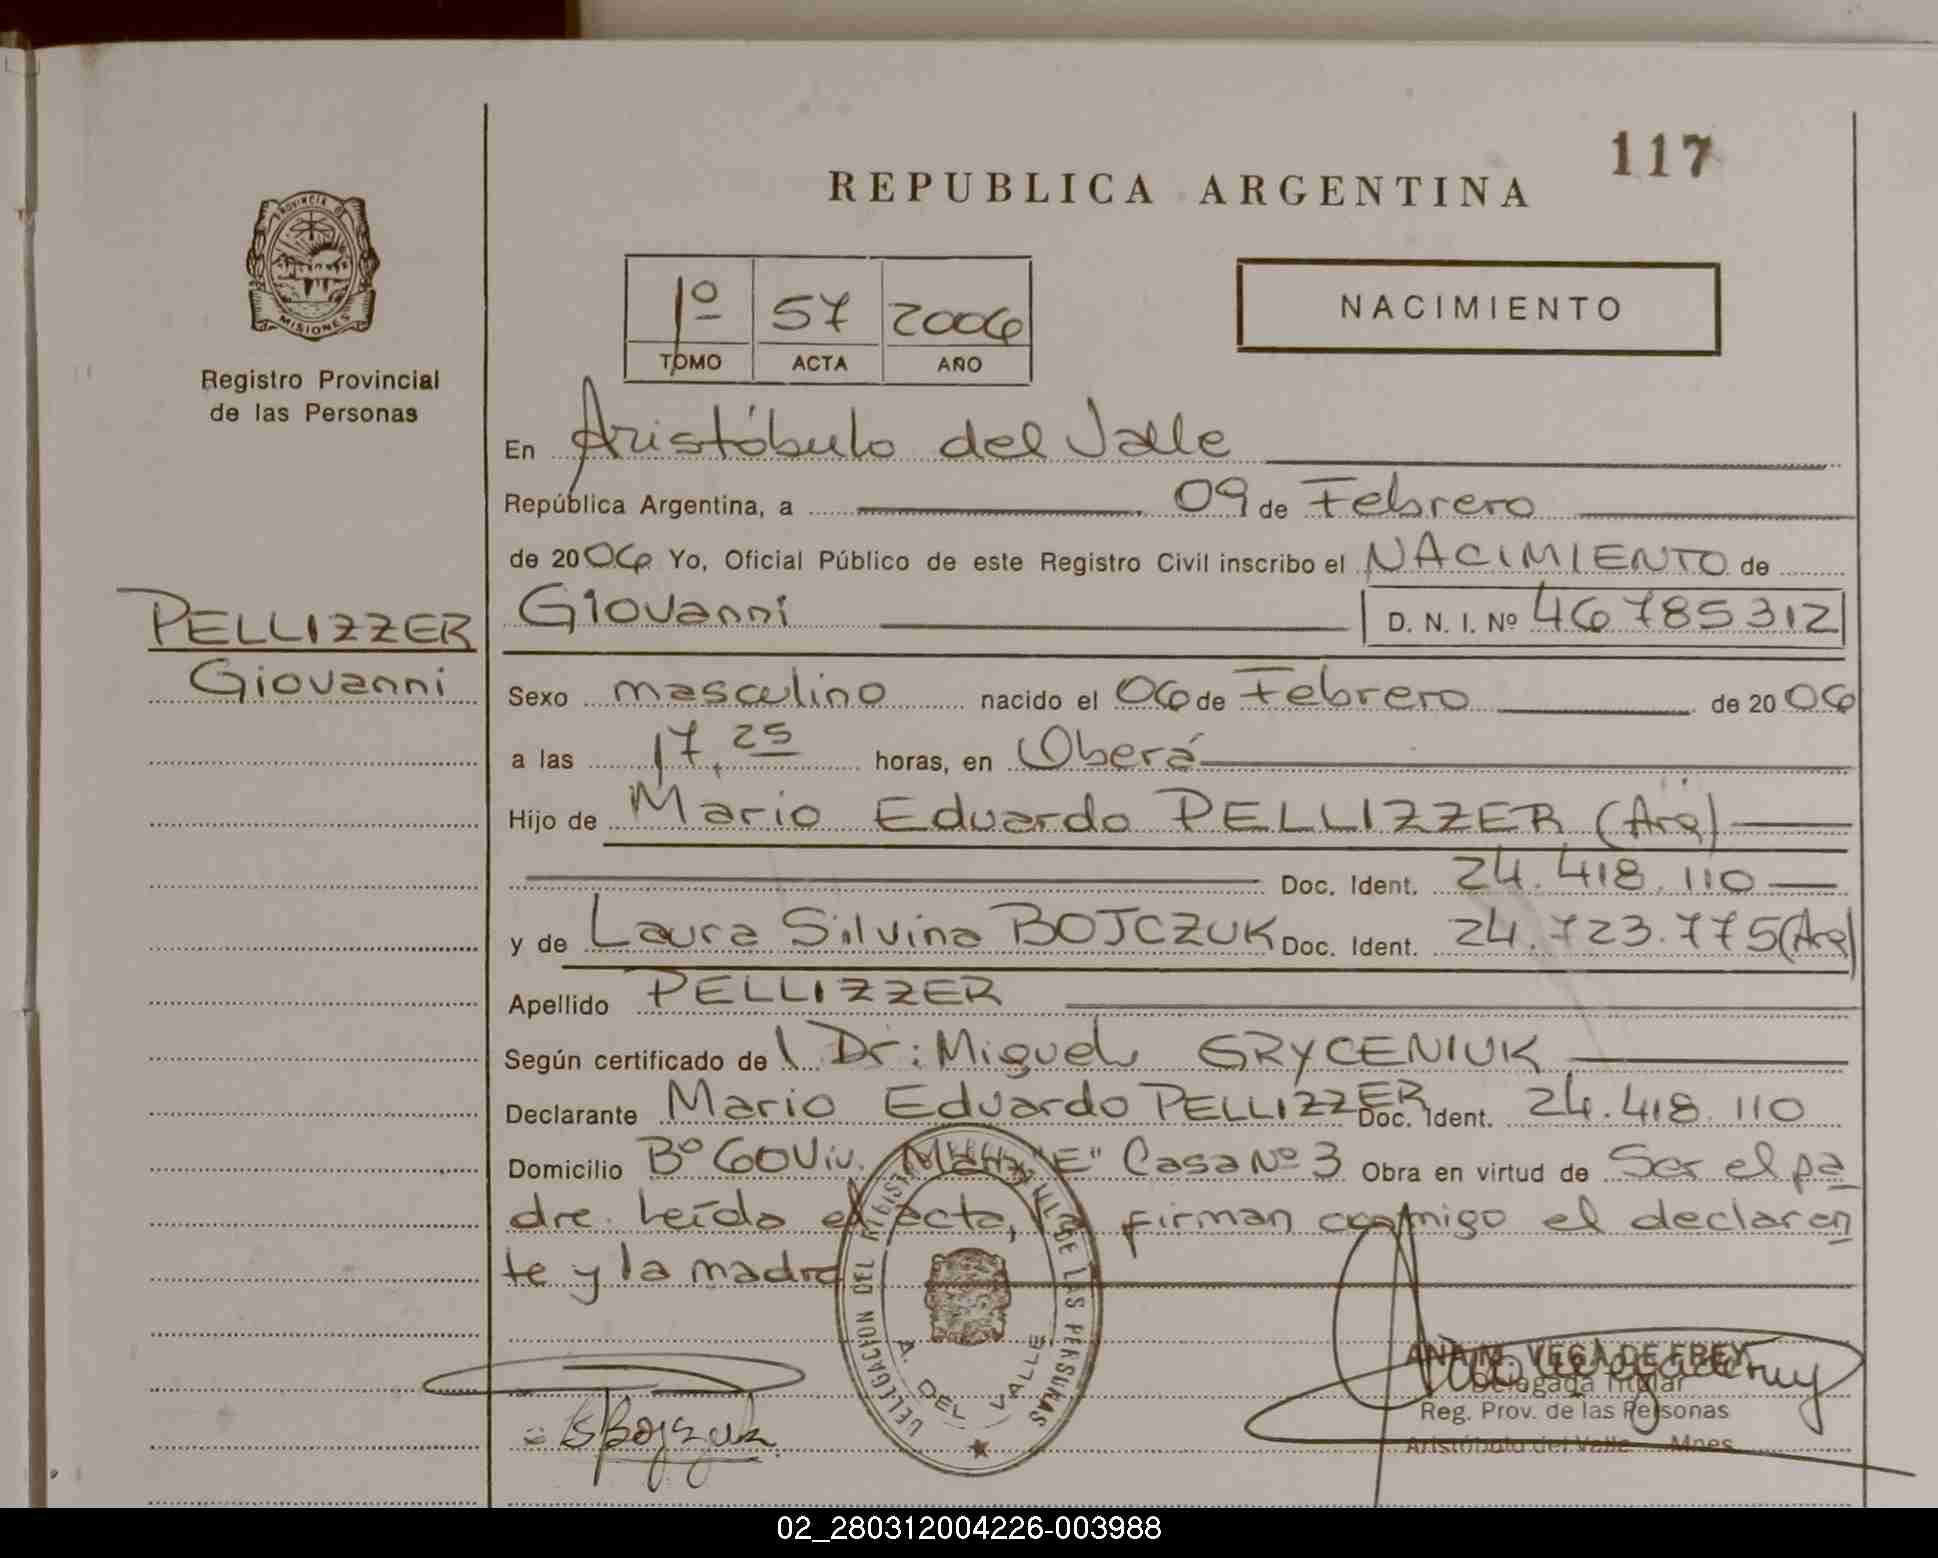 117
REPUBLICA ARGENTINA
PROVINCIA D
MISIONES
Registro Provincial
de las Personas
1º 57 2006
TOMO ACTA AÑO
NACIMIENTO
En Aristóbulo del Valle
República Argentina, a 09 de Febrero
de 2006 Yo, Oficial Público de este Registro Civil inscribo el NACIMIENTO de
PELLIZZER
Giovanni
Giovanni D. N. I. Nº 46785312
Sexo masculino nacido el 06 de Febrero de 2006
a las 17,25 horas, en Oberá
Hijo de Mario Eduardo PELLIZZER (Arg)
Doc. Ident. 24.418.110
y de Laura Silvina BOJCZUK Doc. Ident. 24.723.775 (Arg)
Apellido PELLIZZER
Según certificado de l Dr: Miguel GRYCENIUK
Declarante Mario Eduardo PELLIZZER Doc. Ident. 24.418.110
Domicilio Bº 60 Viv. Manz "E" Casa Nº 3 Obra en virtud de Ser el pa
dre. Leída el acta, firman conmigo el declaran
te y la madre
DELEGACION DEL REGISTRO DE LAS PERSONAS
A. DEL VALLE
ANA M. VEGA DE FREY
Delegada Titular
Reg. Prov. de las Personas
Aristóbulo del Valle Mnes
02_280312004226-003988